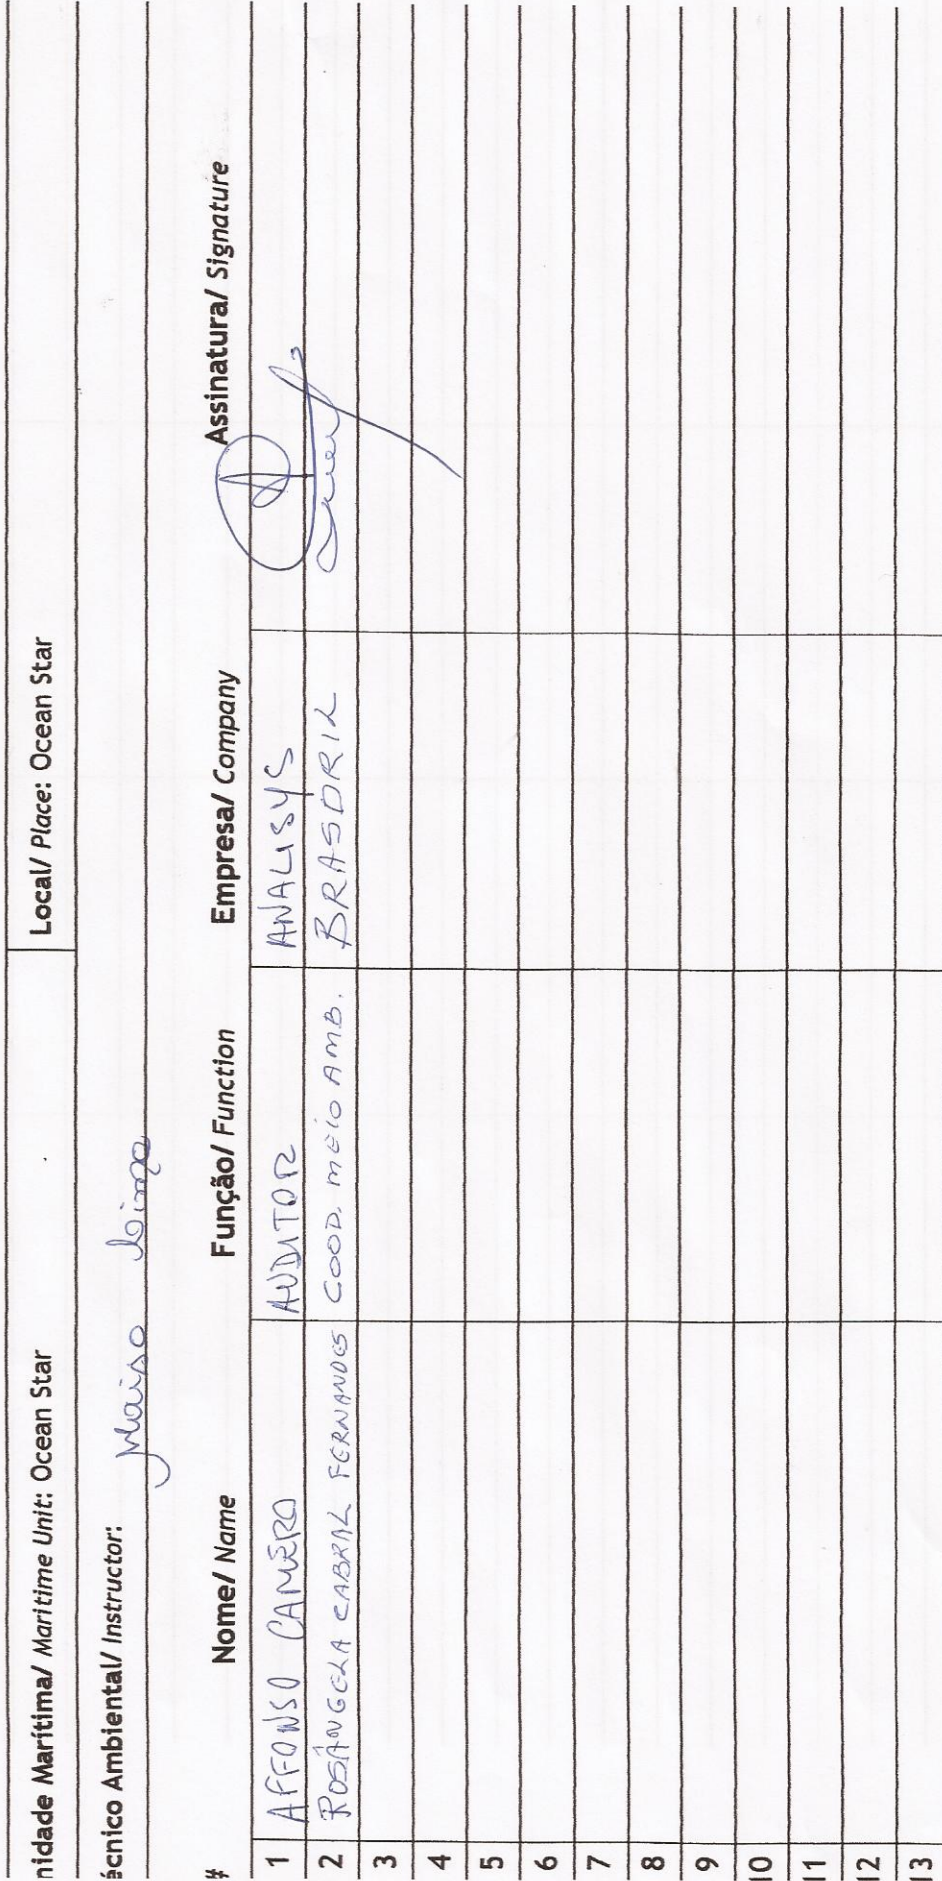 nidade Marítima/ Maritime Unit: Ocean Star Local/ Place: Ocean Star
écnico Ambiental/ Instructor: Maisa Lima
# Nome/ Name Função/ Function Empresa/ Company Assinatura/ Signature
1 AFFONSO CAMERO AUDITOR ANALISYS
2 ROSÂNGELA CABRAL FERNANDES COOD. MEIO AMB. BRASDRIL
3
4
5
6
7
8
9
10
11
12
13